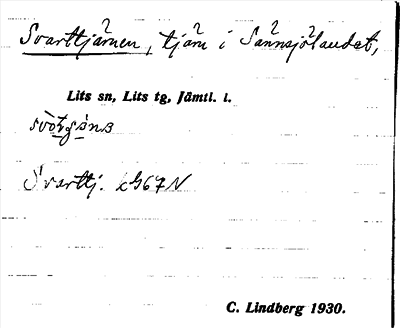 Svarttjärnen, tjärn i Sännsjölandet,
Lits sn, Lits tg, Jämtl. l.
Svarttj. LG67N
C. Lindberg 1930.